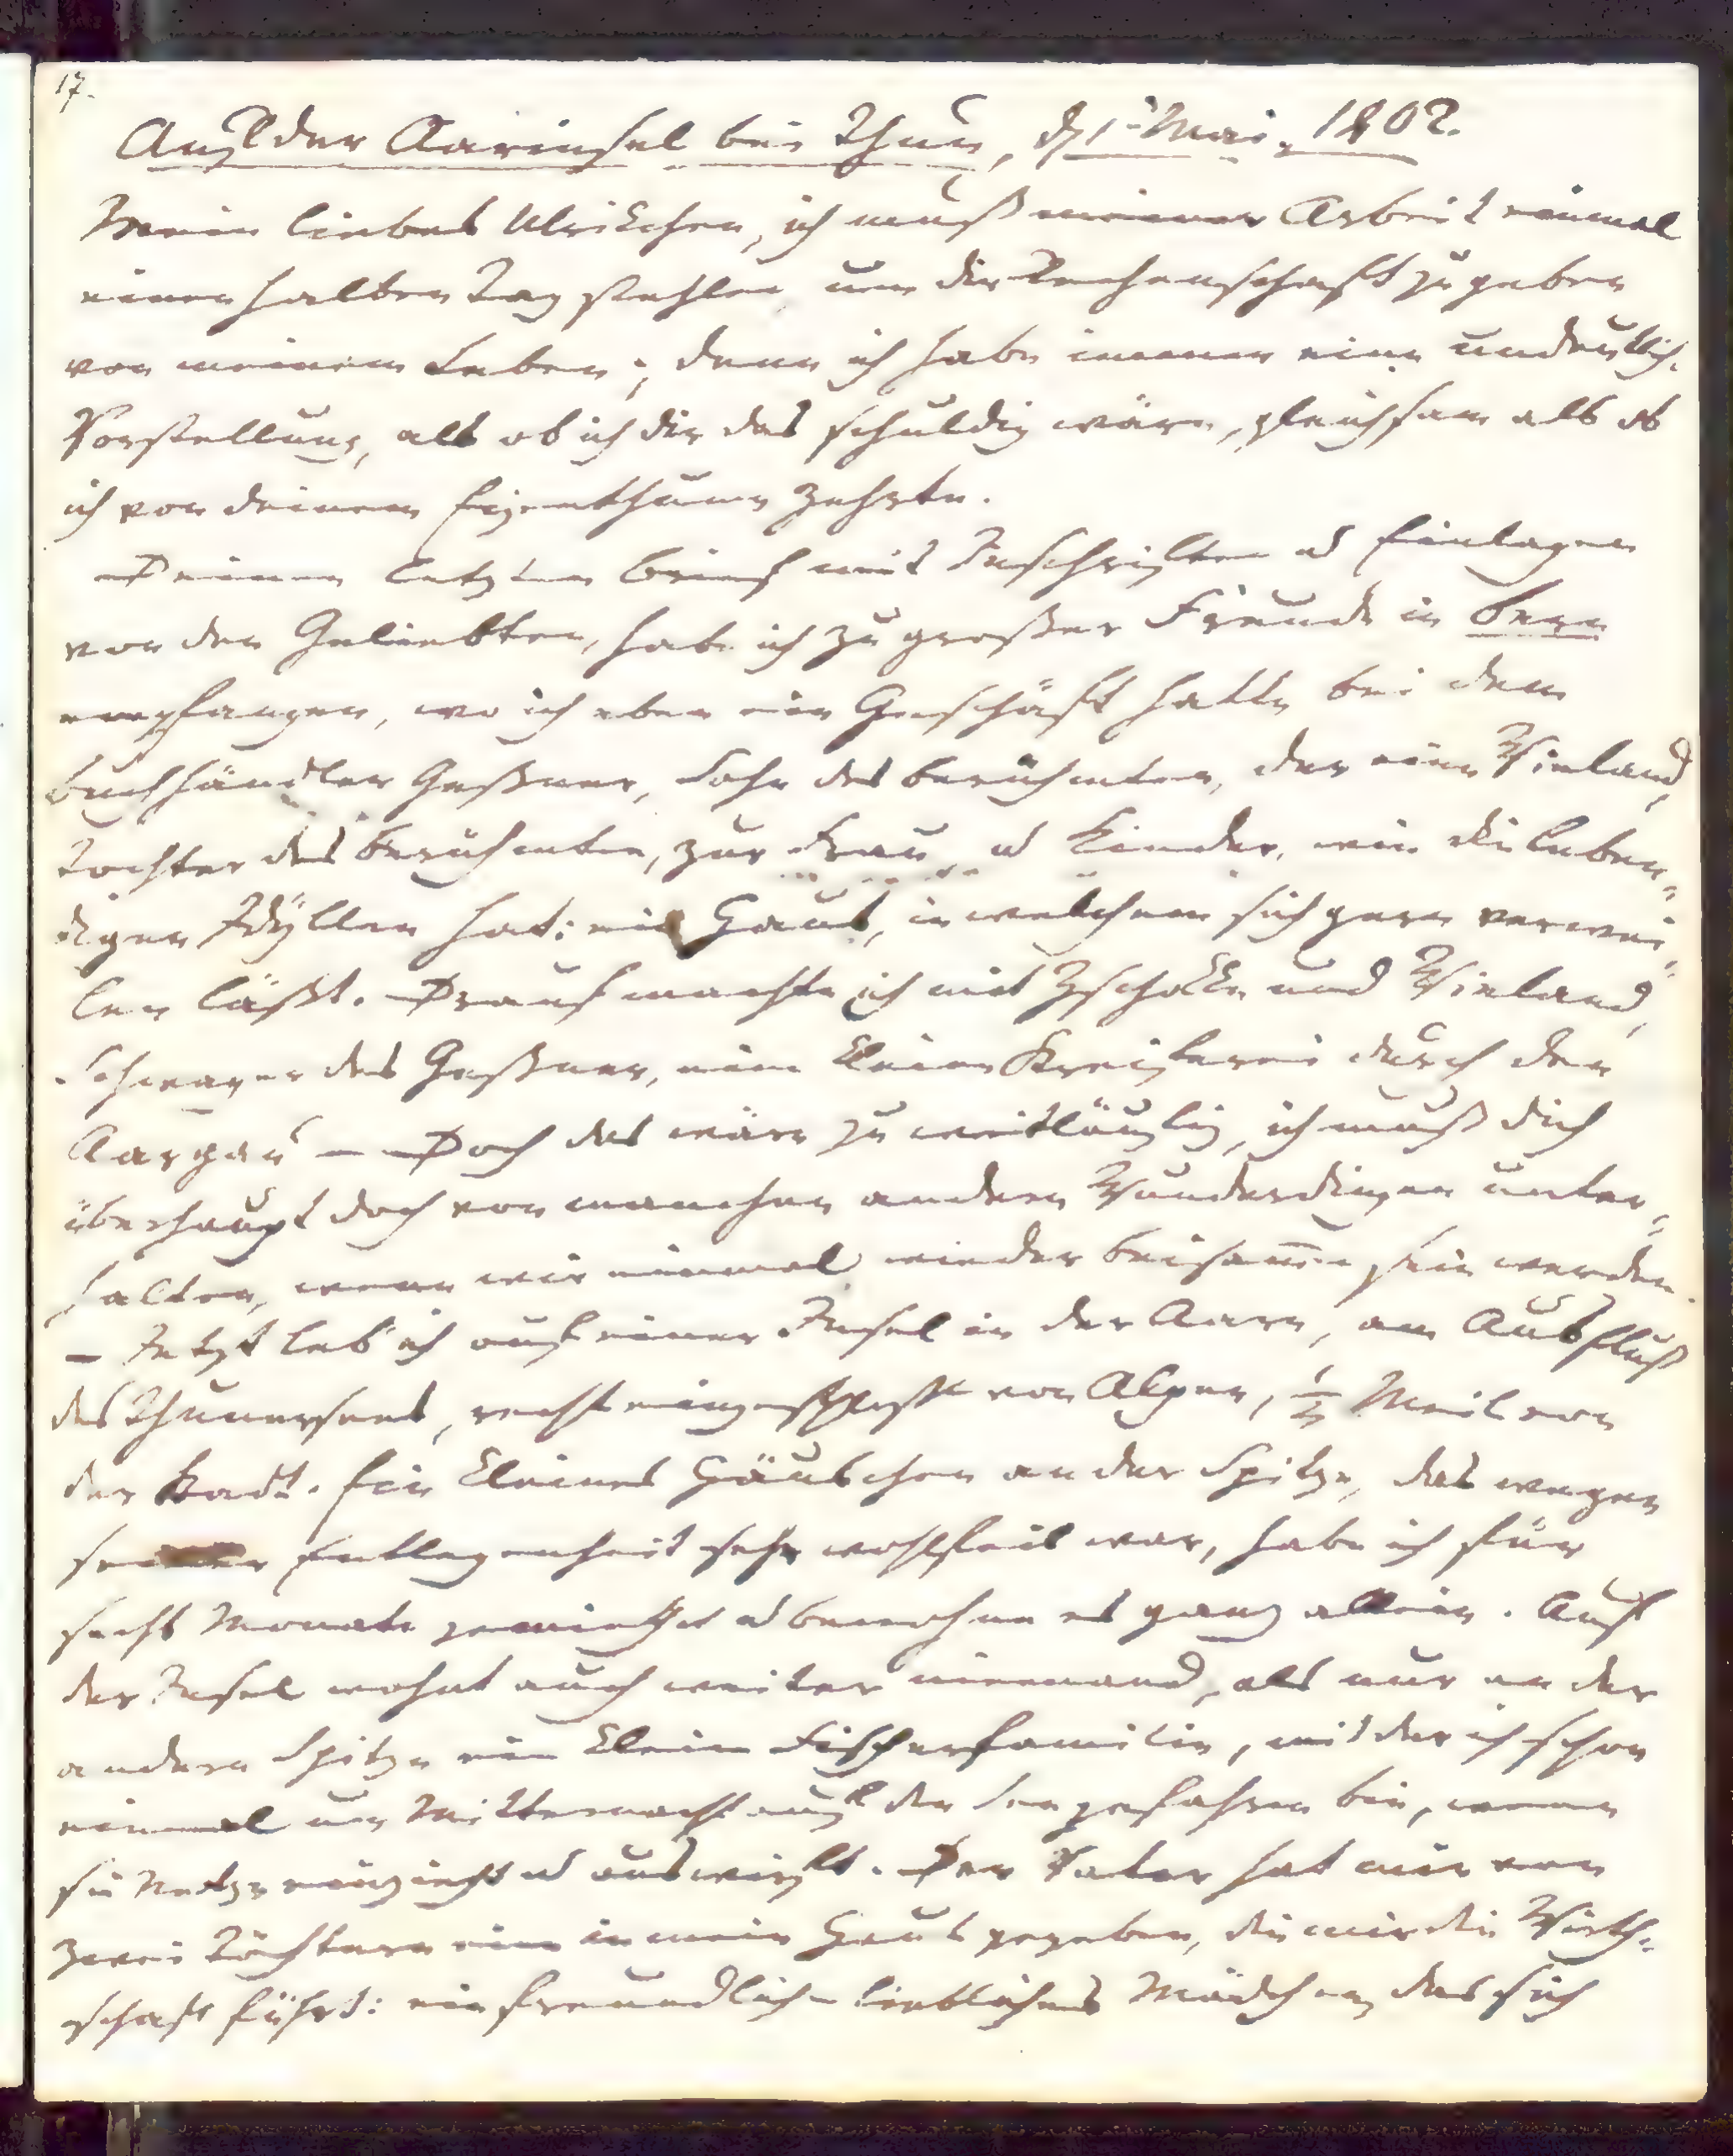 17.
Auf der Aarinsel bei Thun, d. 1t Mai, 1802.
Mein liebes Ulrikchen, ich muß meiner Arbeit einmal
einen halben Tag stehlen um dir Rechenschaft zu geben
von meinem Leben; denn ich habe immer eine undeutlich.
Vorstellung, als ob ich dir das schuldig wäre, gleichsam als ob
ich von deinem Eigenthume zehrte.
Deinen letzten Brief mit Inschriften u Einlagen
von den Geliebten, habe ich zu großer Freude in Bern
empfangen, wo ich eben ein Geschäft hatte bei dem
Buchhändler Geßner, Sohn des berühmten, der eine Wieland,
Tochter des berühmten, zur Frau, u Kinder, wie die leben=
digen Idyllen hat: ein Haus, in welchem sich gern verwei=
len läßt. Drauf machte ich mit Zschokke und Wieland,
Schwager des Geßner, eine kleine Streiferei durch den
Aargau – Doch das wäre zu weitläufig, ich muß dich
überhaupt doch von manchen andern Wunderdingen unter=
halten, wenn wir einmal wieder beisam̄en sein werden.
– Jetzt leb' ich auf einer Insel in der Aare, am Ausfluß
des Thunersees, recht eingeschlossen von Alpen, 1/4 Meil von
der Stadt. Ein kleines Häuschen an der Spitze, das wegen
seiner Entlegenheit sehr wohlfeil war, habe ich für
sechs Monate gemiethet u bewohne es ganz allein. Auf
der Insel wohnt auch weiter niemand, als nur an der
andern Spitze eine kleine Fischerfamilie, mit der ich schon
einmal um Mitternacht auf den See gefahren bin, wenn
sie Netze einzieht u auswirft. Der Vater hat mir von
zwei Töchtern eine in mein Haus gegeben, die mir die Wirth=
schaft führt: ein freundlich-liebliches Mädchen, das sich